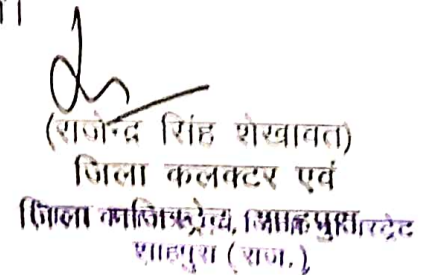 (राजेन्द्र सिंह शेखावत)
जिला कलक्टर एवं
जिला
शाहपुरा (राज.)